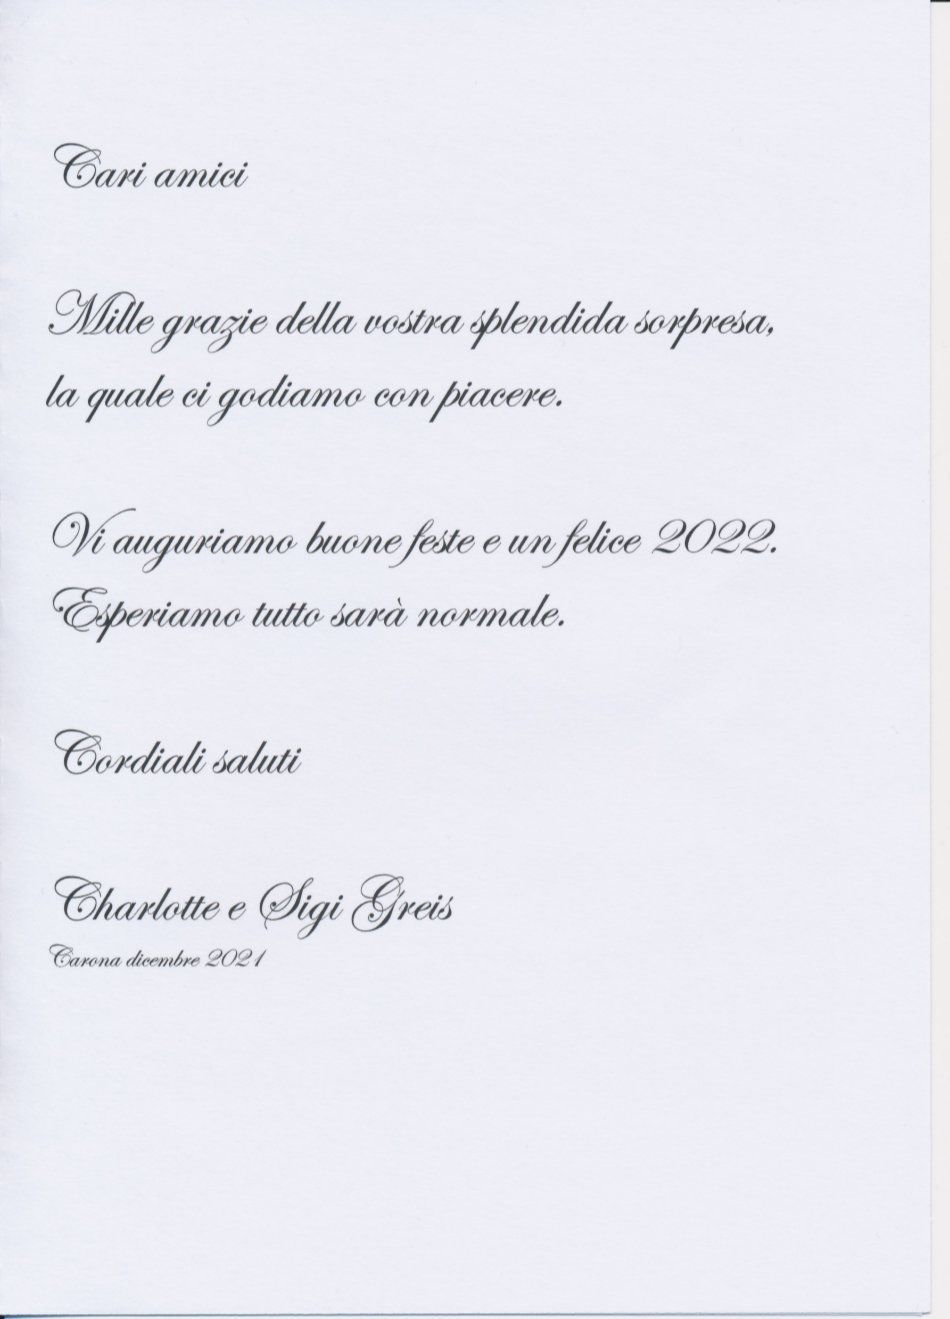 Cari amici
Mille grazie della vostra splendida sorpresa,
la quale ci godiamo con piacere.
Vi auguriamo buone feste e un felice 2022.
Esperiamo tutto sarà normale.
Cordiali saluti
Charlotte e Sigi Greis
Carona dicembre 2021